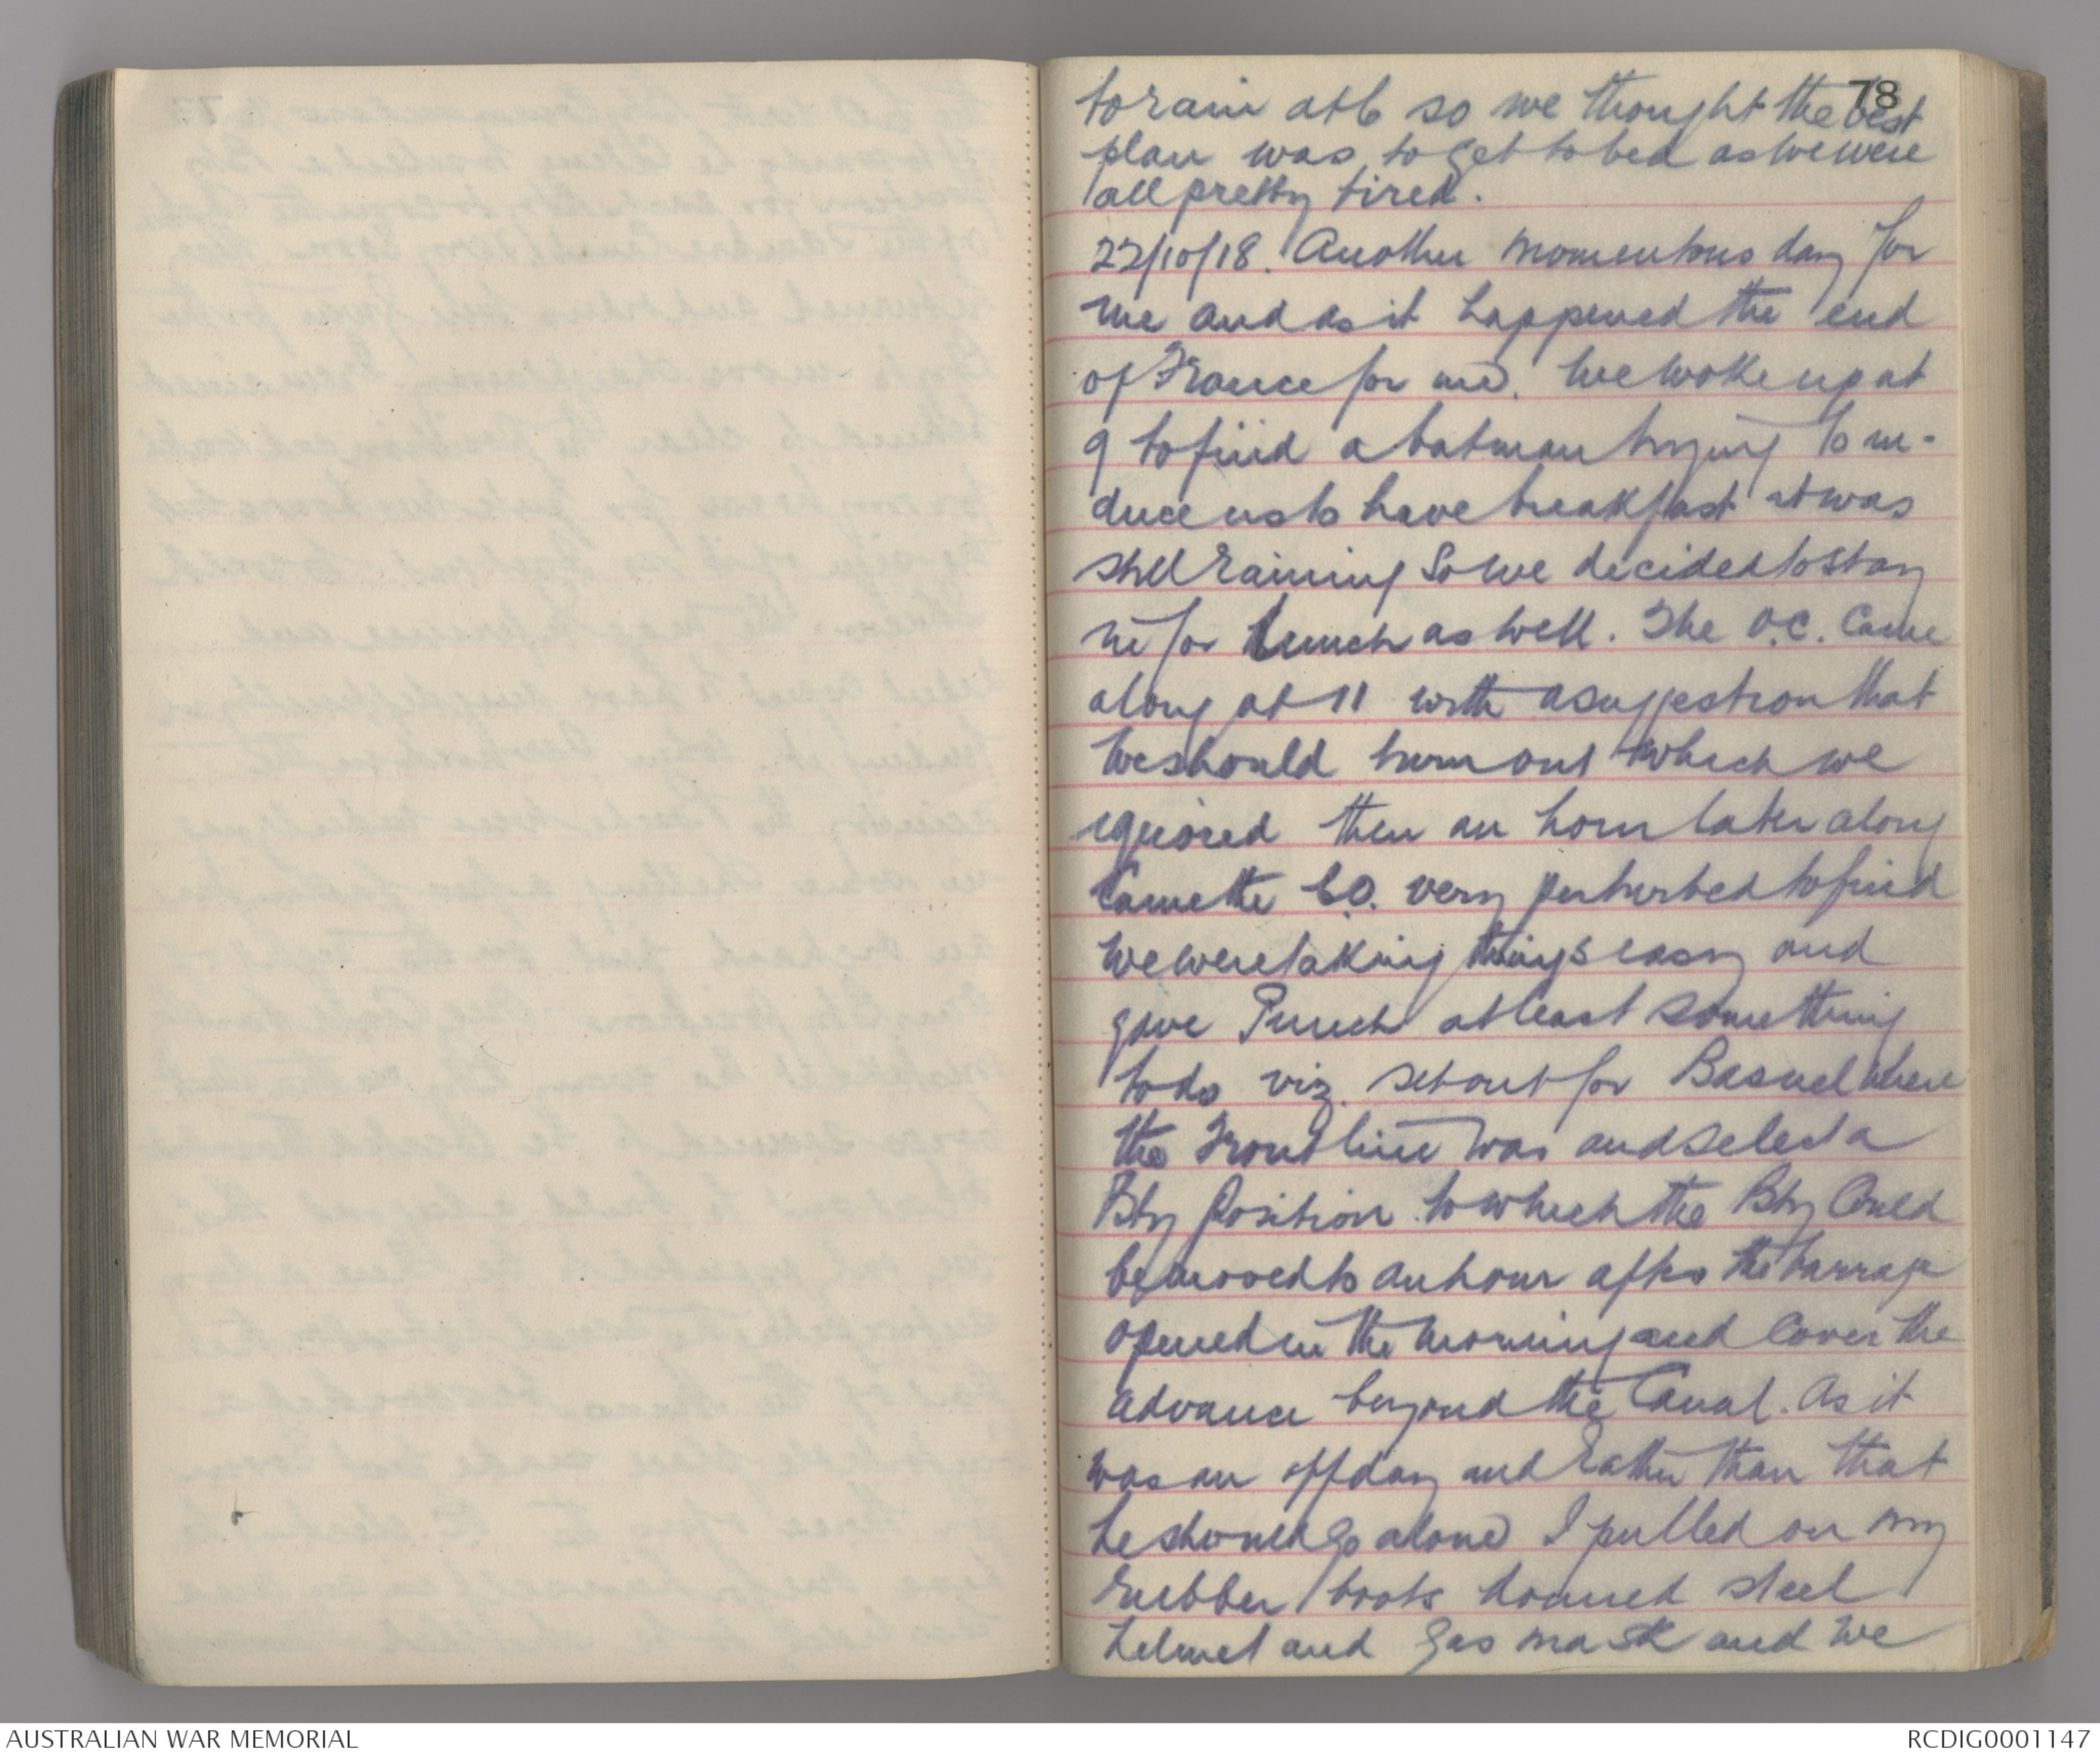 78
to rain at 6 so we thought the best
plan was to get to bed as we were
all pretty tired.
22/10/18. Another momentous day for
me and as it happened the end
of France for me. We woke up at
9 to find a batman trying to in-
duce us to have breakfast it was
still raining so we decided to stay
in for lunch as well. The O.C. came
along at 11 with a suggestion that
we should turn out which we
ignored then an hour later along
came the C.O. very perturbed to find
we were taking things easy and
gave Punch at least something
to do viz. set out for Basuel where
the Front line was and select a
Bty Position to which the Bty Could
be moved to an hour after the barrage
opened in the morning and cover the
advance beyond the Canal. As it
was an off day and rather than that
he should go alone I pulled on my
rubber boots donned steel
helmet and gas mask and we
AUSTRALIAN WAR MEMORIAL
RCDIG0001147